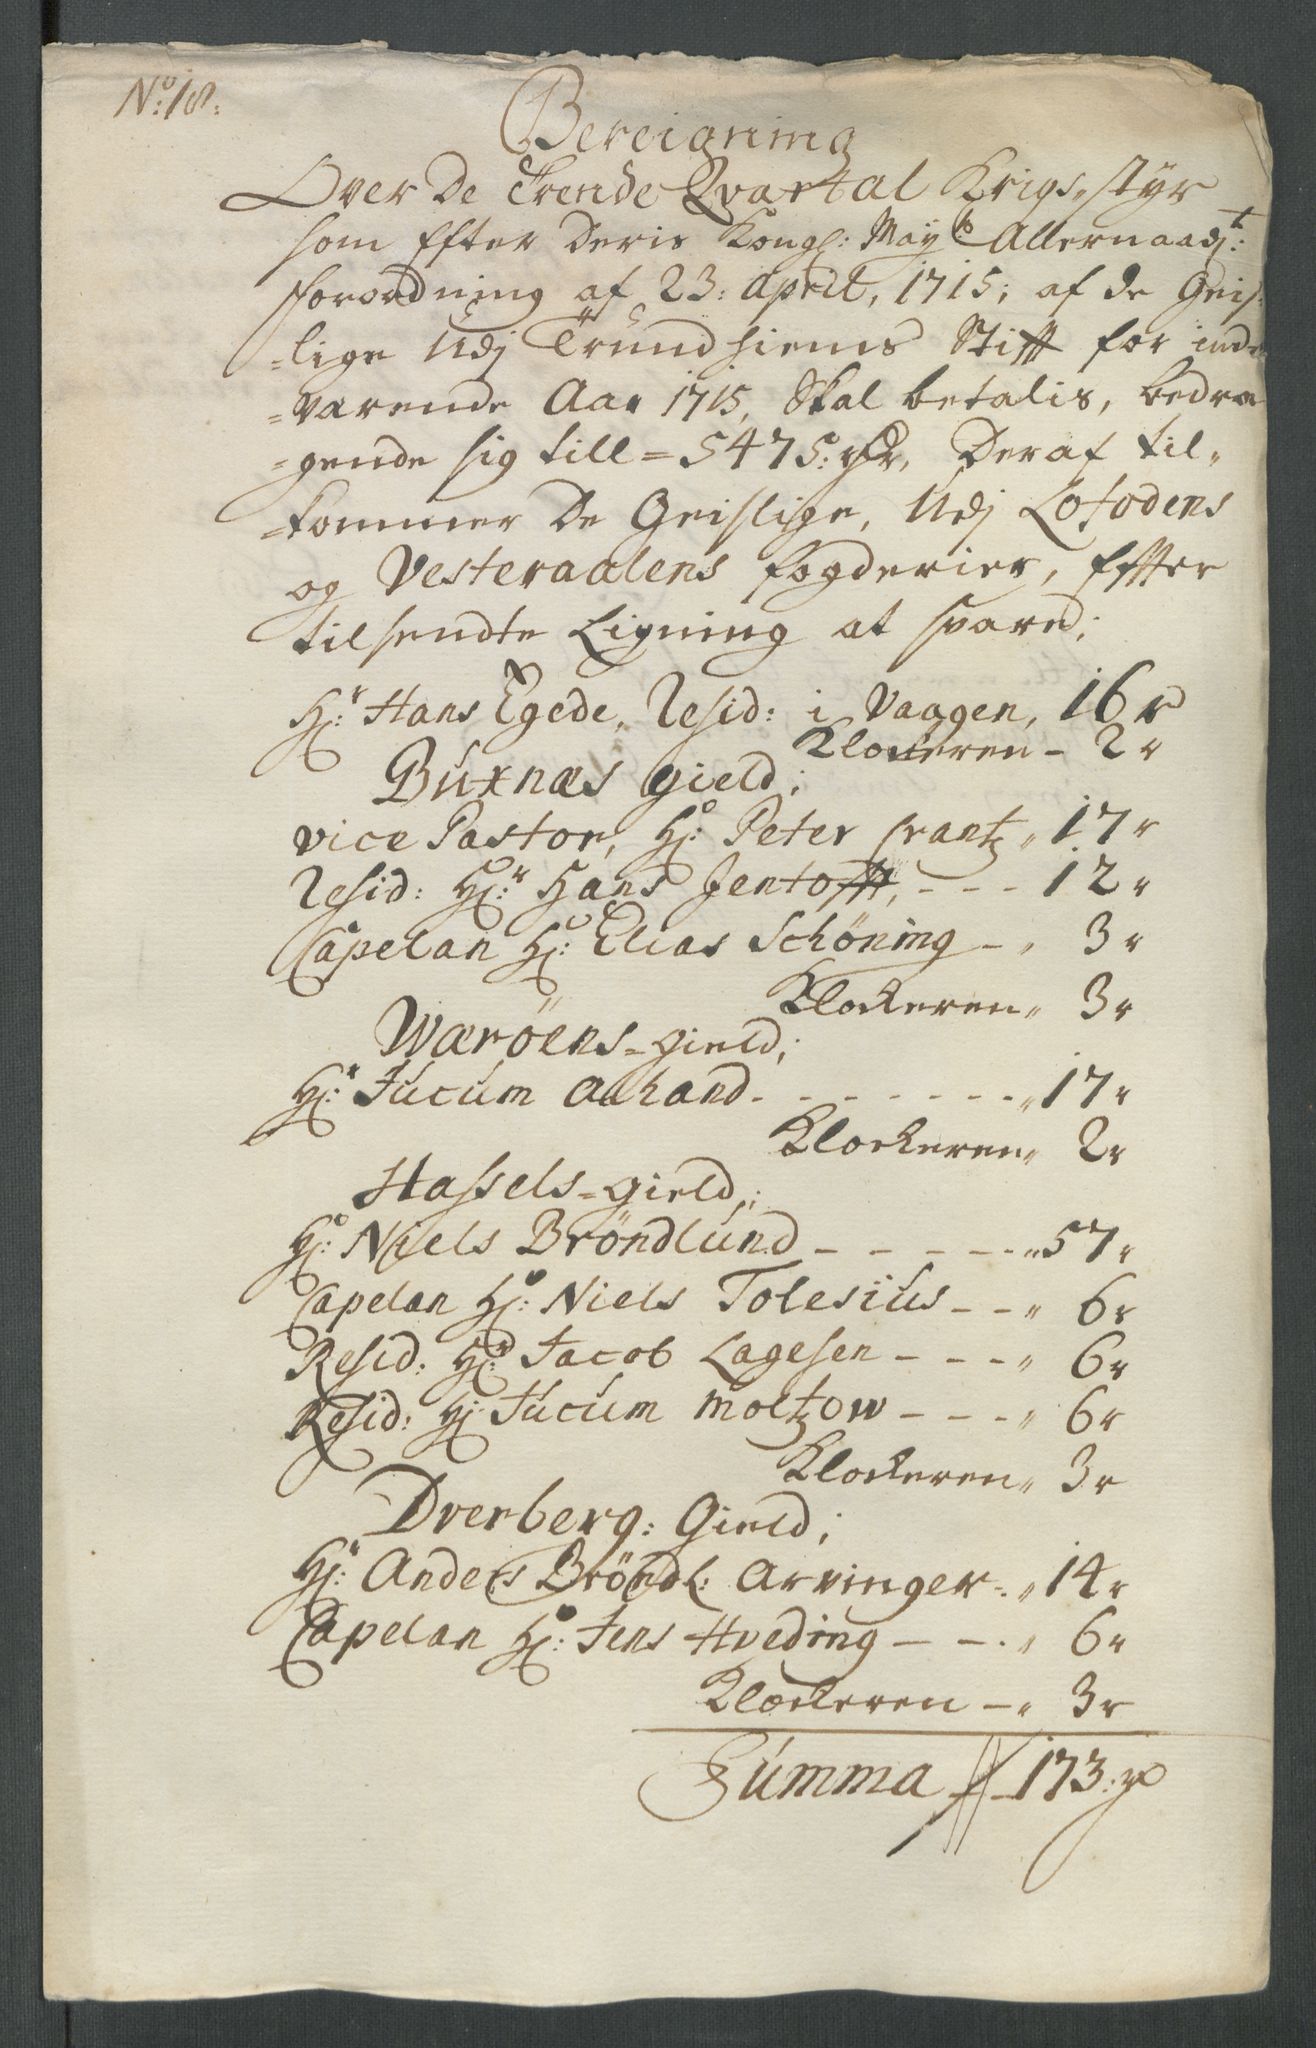 No: 18:
Bereigning
Over De Trende Qvartal Krigs-styr
som Efter Deris Kongl: Mayts Allernaadt:
forordning af 23: April, 1715; af de Geis-
-lige Udj Trundhiems Stifft for ind-
-værende Aar 1715, Skal betalis, bedra-
-gende sig till = 5475: rdr, Deraf til-
-kommer De Geislige, Udj Lofodens
og Vesteraalens fogderier, Effter
tilsendte Ligning at svared;
Hr: Hans Egede, Resid: i Vaagen, 16 r
Klockeren - 2 r
Buxnæs gield;
vice Pastor, Hr: Peter Crantz " 17 r
Resid: Hr: Hans Jentofft, - - - 12 r
Capelan Hr: Elias Schöning - " 3 r
Klockeren " 3 r
Wæröens-gield;
Hr: Jucum Ackand - - - - - - - " 17 r
Klockeren " 2 r
Hassels-gield;
Hr: Niels Bröndlund - - - - - " 57 r
Capelan Hr: Niels Tolesius - - " 6 r
Resid: Hr: Jacob Lagesen - - - " 6 r
Resid: Hr: Jucum Moltzow - - - " 6 r
Klockeren " 3 r
Dverberg: Gield;
Hr: Anders Bröndl: Arvinger - " 14 r
Capelan Hr: Jens Hveding - - " 6 r
Klockeren - " 3 r
Summa - 173: rd